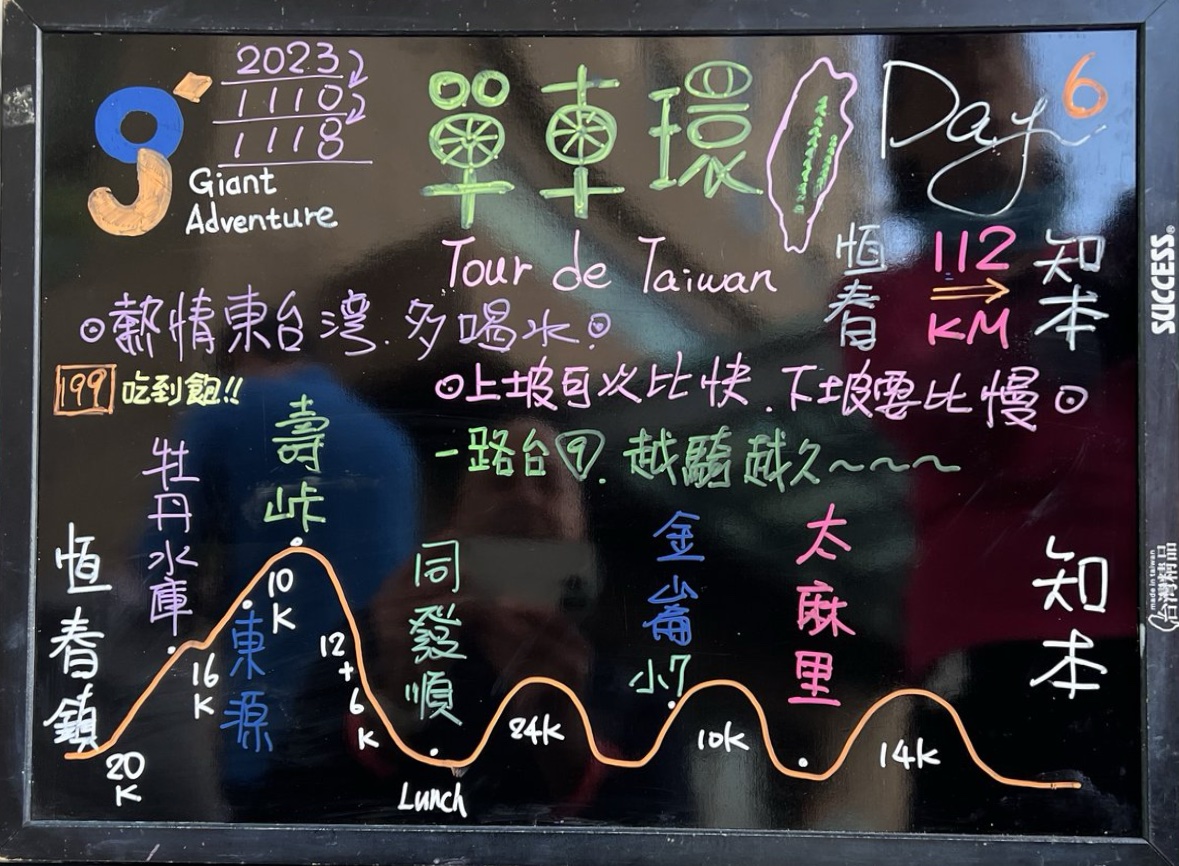 2023
1110
1118
Giant
Adventure
單車環
Day 6
Tour de Taiwan
恆春
112
KM
知本
熱情東台灣.多喝水
199 吃到飽!!
上坡自以比快.下坡要比慢
一路台9.越騎越久~~~~
恆春鎮
20
K
牡丹水庫
16
K
東源
10
K
壽峠
12
+
6
K
同發順
Lunch
24K
金崙
小7
10K
太麻里
14K
知本
SUCCESS®
made in taiwan
台灣精品